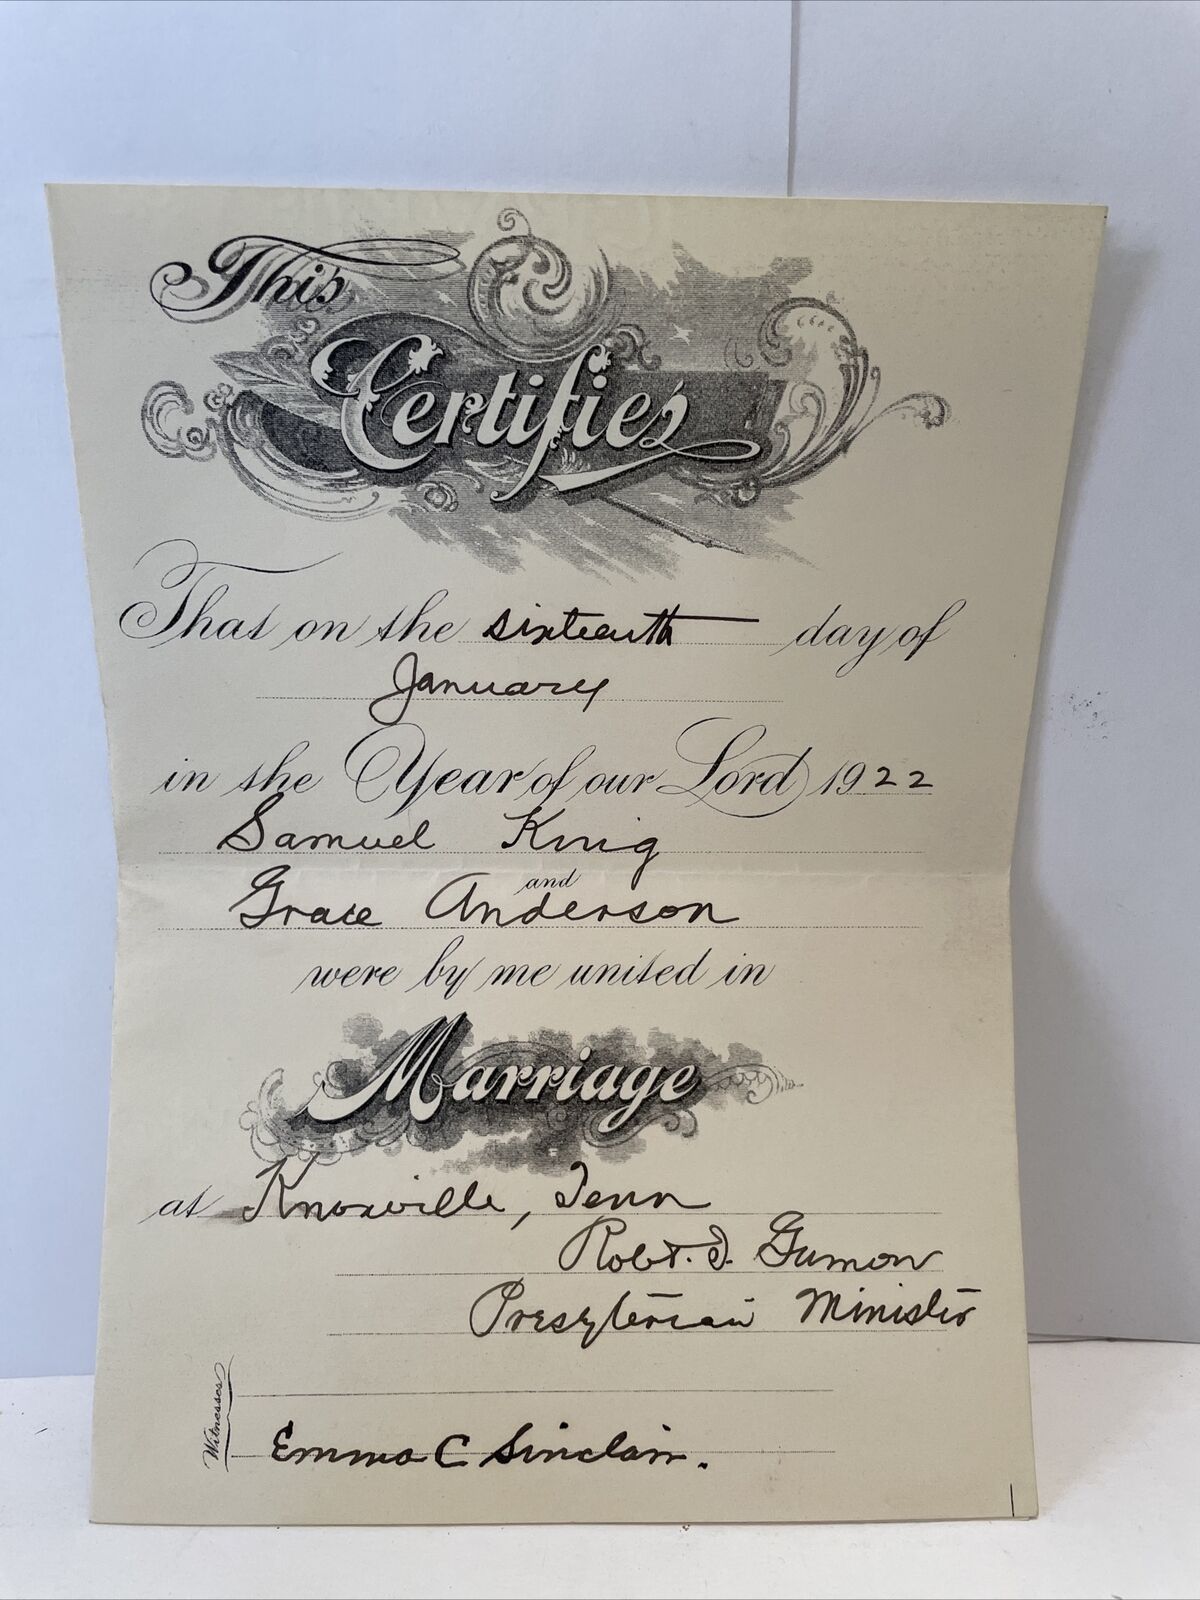 This
Certifies
That on the sixteenth day of
January
in the Year of our Lord 1922
Samuel King
and
Grace Anderson
were by me united in
Marriage
at Knoxville, Tenn
Robt. I. Gamon
Presbyterian Minister
Witnesses
Emma C Sinclair.